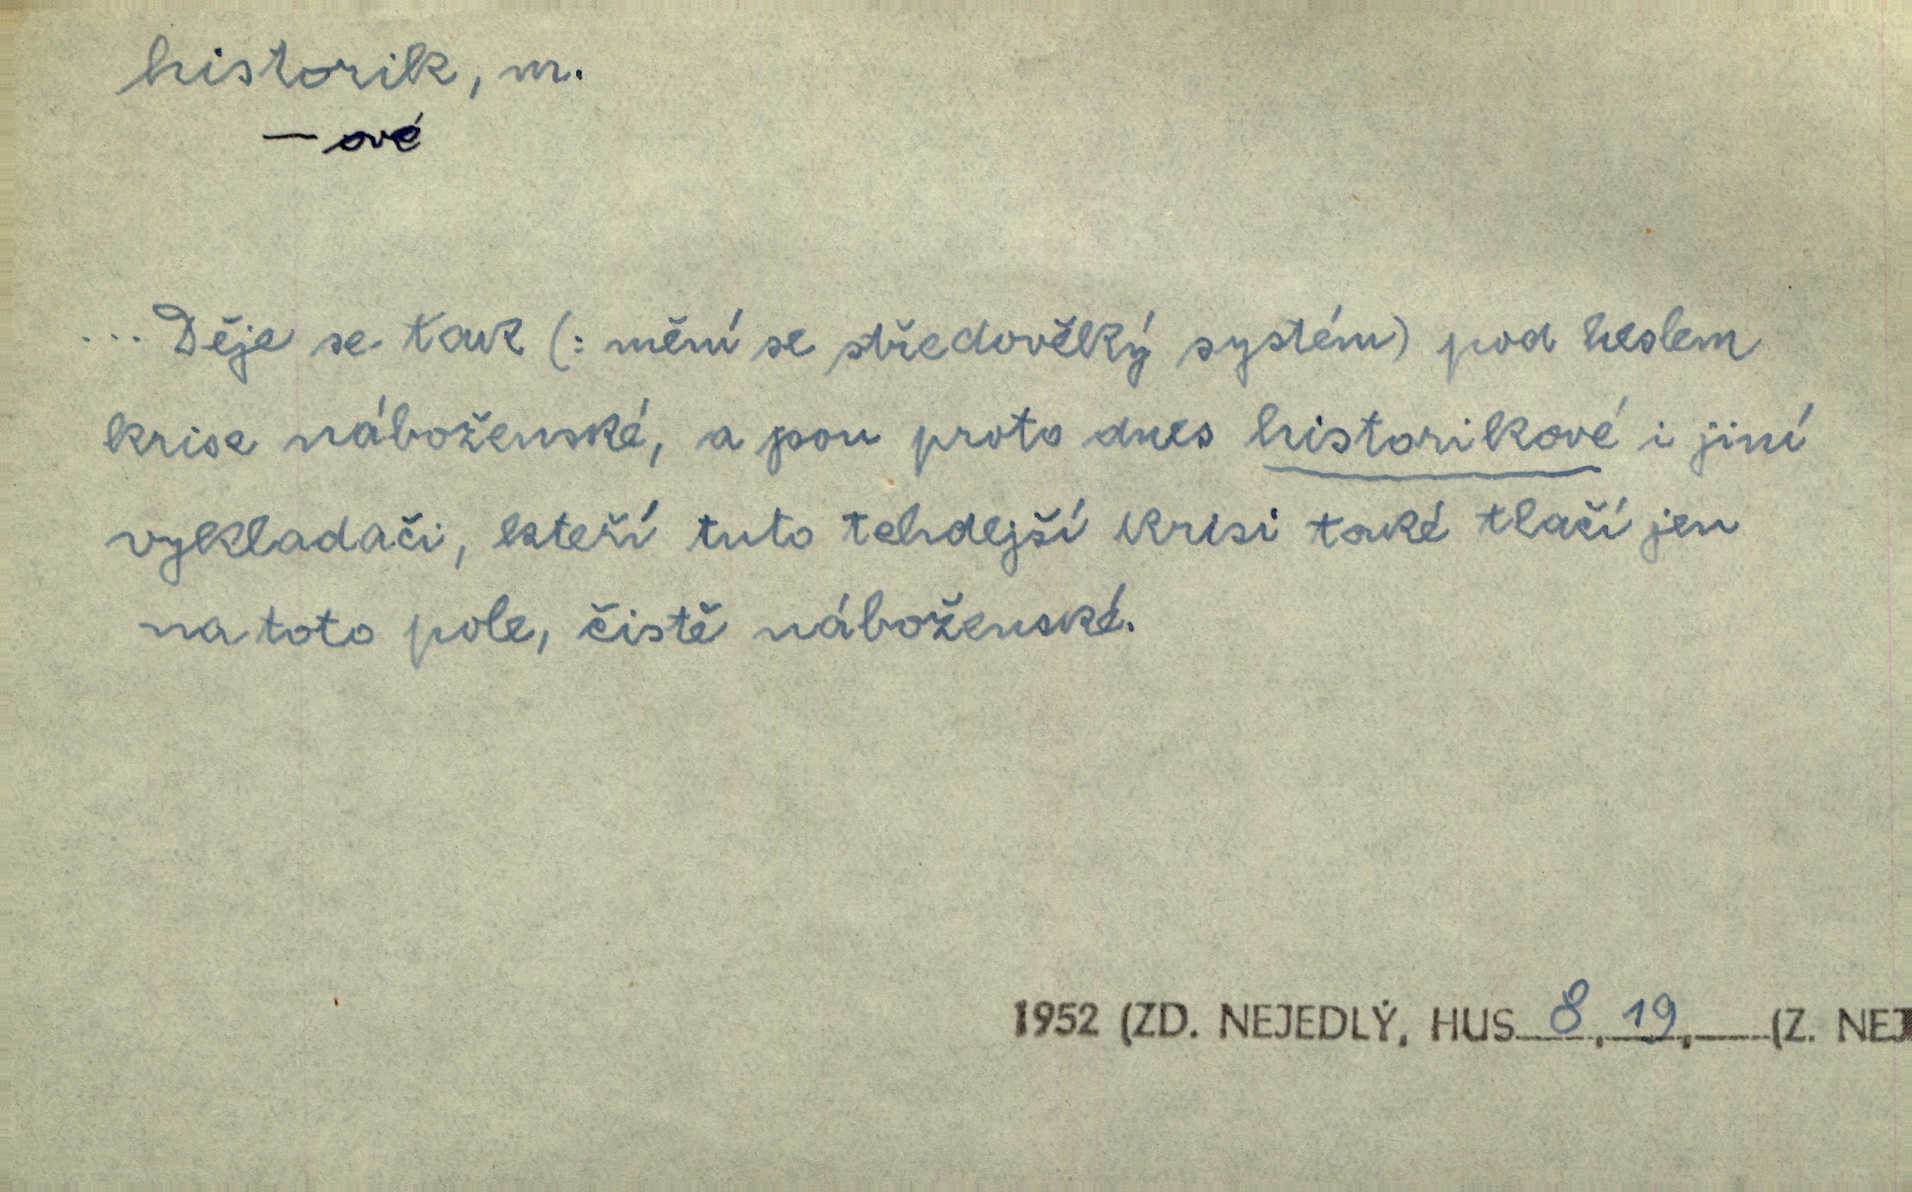 historik, m.
— ové
... Děje se tak (: mění se středověký systém) pod heslem
krise náboženské, a jsou proto dnes historikové i jiní
vykladači, kteří tuto tehdejší krisi také tlačí jen
na toto pole, čistě náboženské.
1952 (ZD. NEJEDLÝ, HUS 8, 19, (Z. NEJ